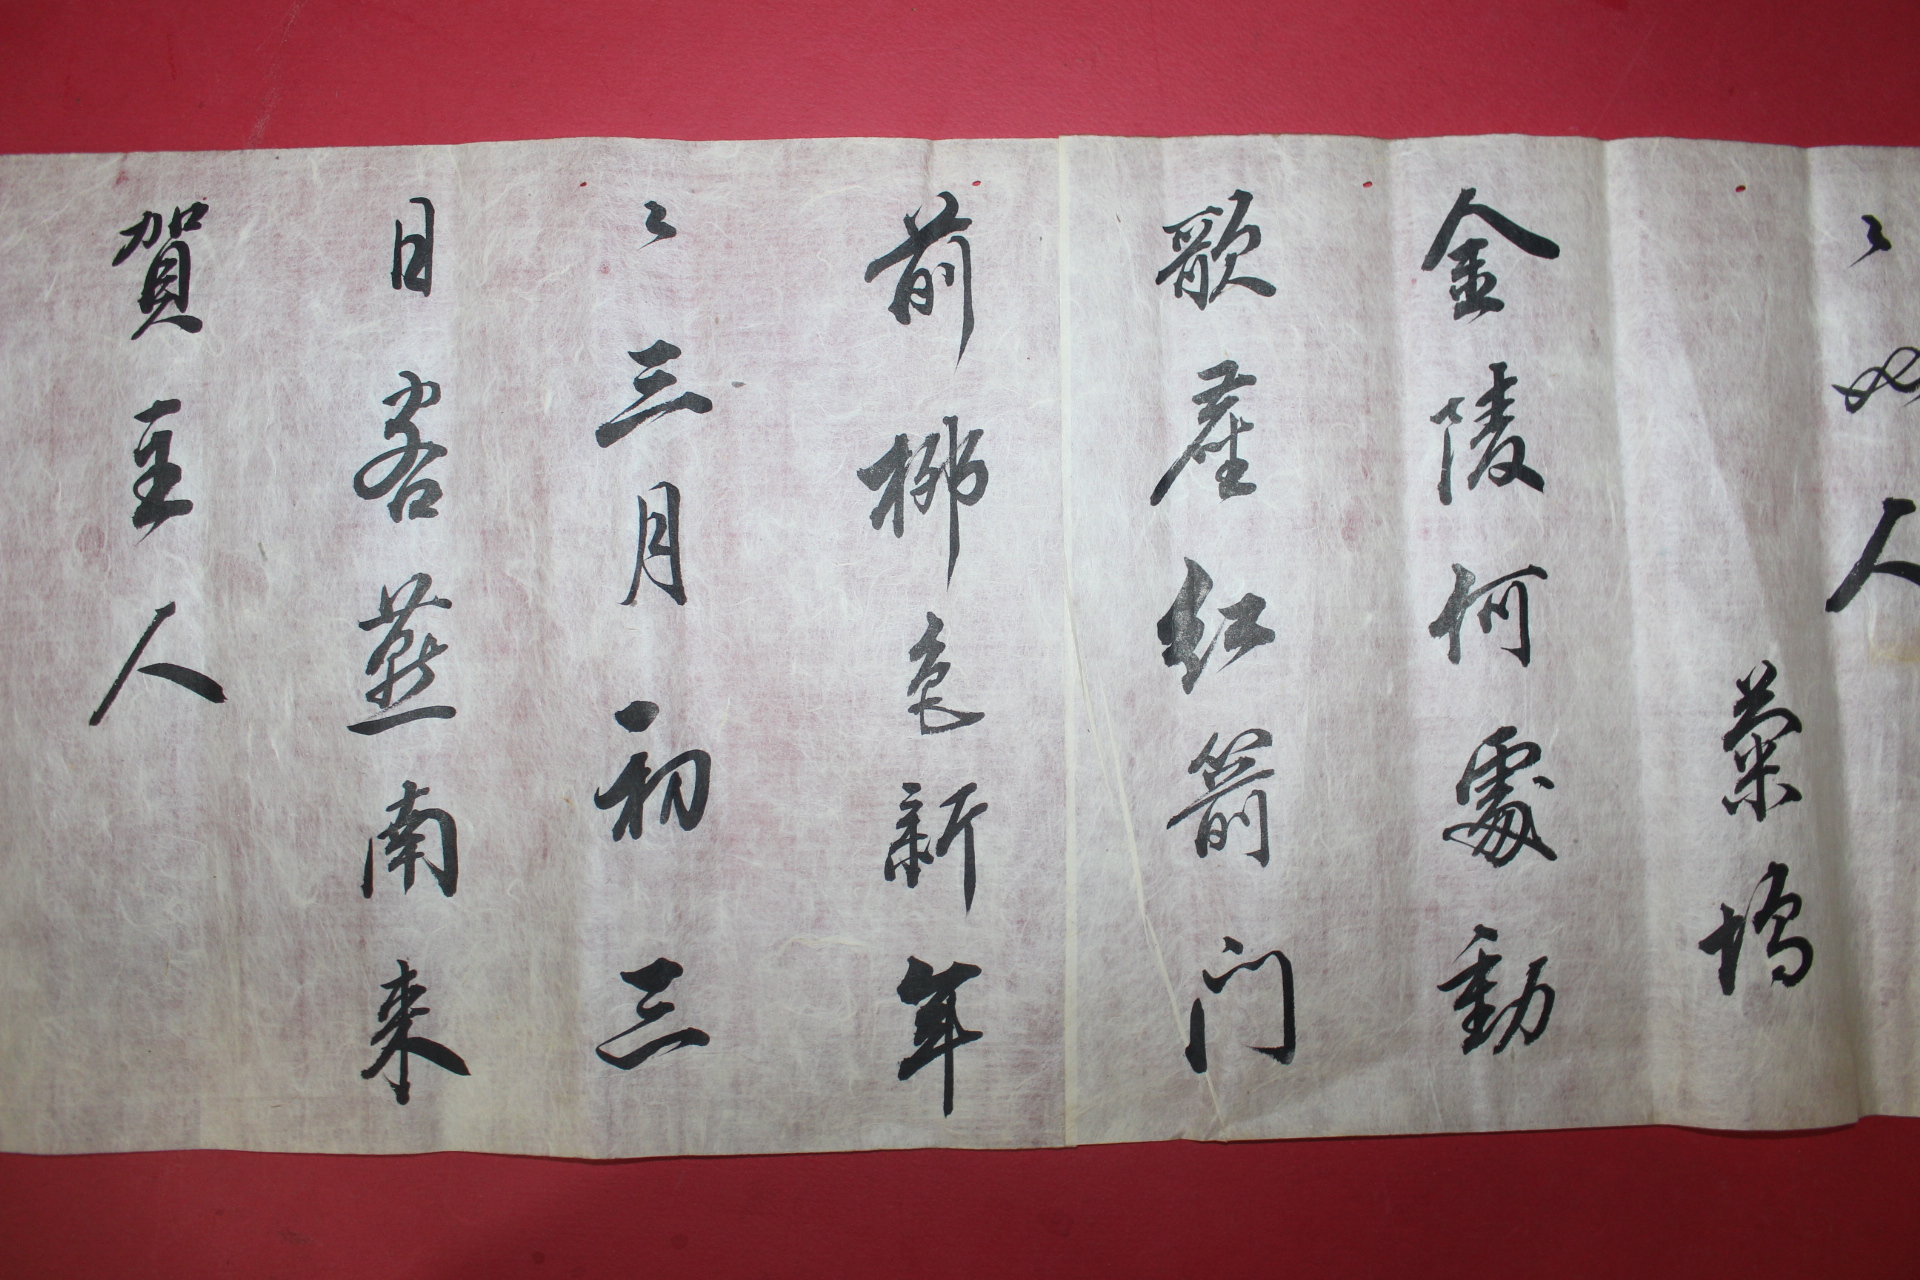 〻人
菊塢
金陵何處動
歌塵红箭门
前柳色新年
〻三月初三
日客燕南来
賀主人